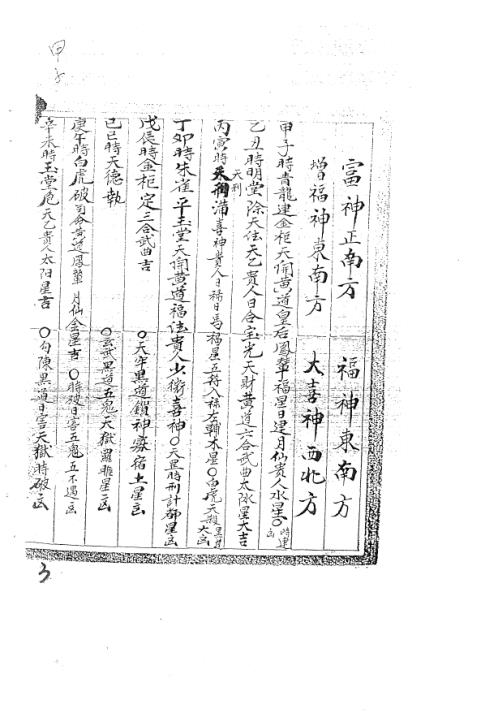 甲子
富神正南方 福神東南方
增福神東南方 大喜神西北方
甲子時青龍建金柜天開黃道皇后鳳輦福星日建月仙貴人水星〇時建凶
乙丑時明堂除天法天乙貴人日合宝光天財黃道六合武曲太阴星大吉
丙寅時天刑滿喜神貴人日祿日馬福星五符入祿左輔木星〇白虎天殺黑道大凶
天刑
丁卯時朱雀平玉堂天開黃道福法貴人少微喜神〇天罡時刑計都星凶
戊辰時金柜定三合武曲吉 〇天牢黑道鎖神寡宿土星凶
己巳時天德執 〇玄武黑道五鬼天獄羅睺星凶
庚午時白虎破司命黃道鳳輦月仙金星吉 〇時破日害五鬼五不遇凶
辛未時玉堂危天乙貴人太阳星吉 〇勾陳黑道日害天獄時破凶
3